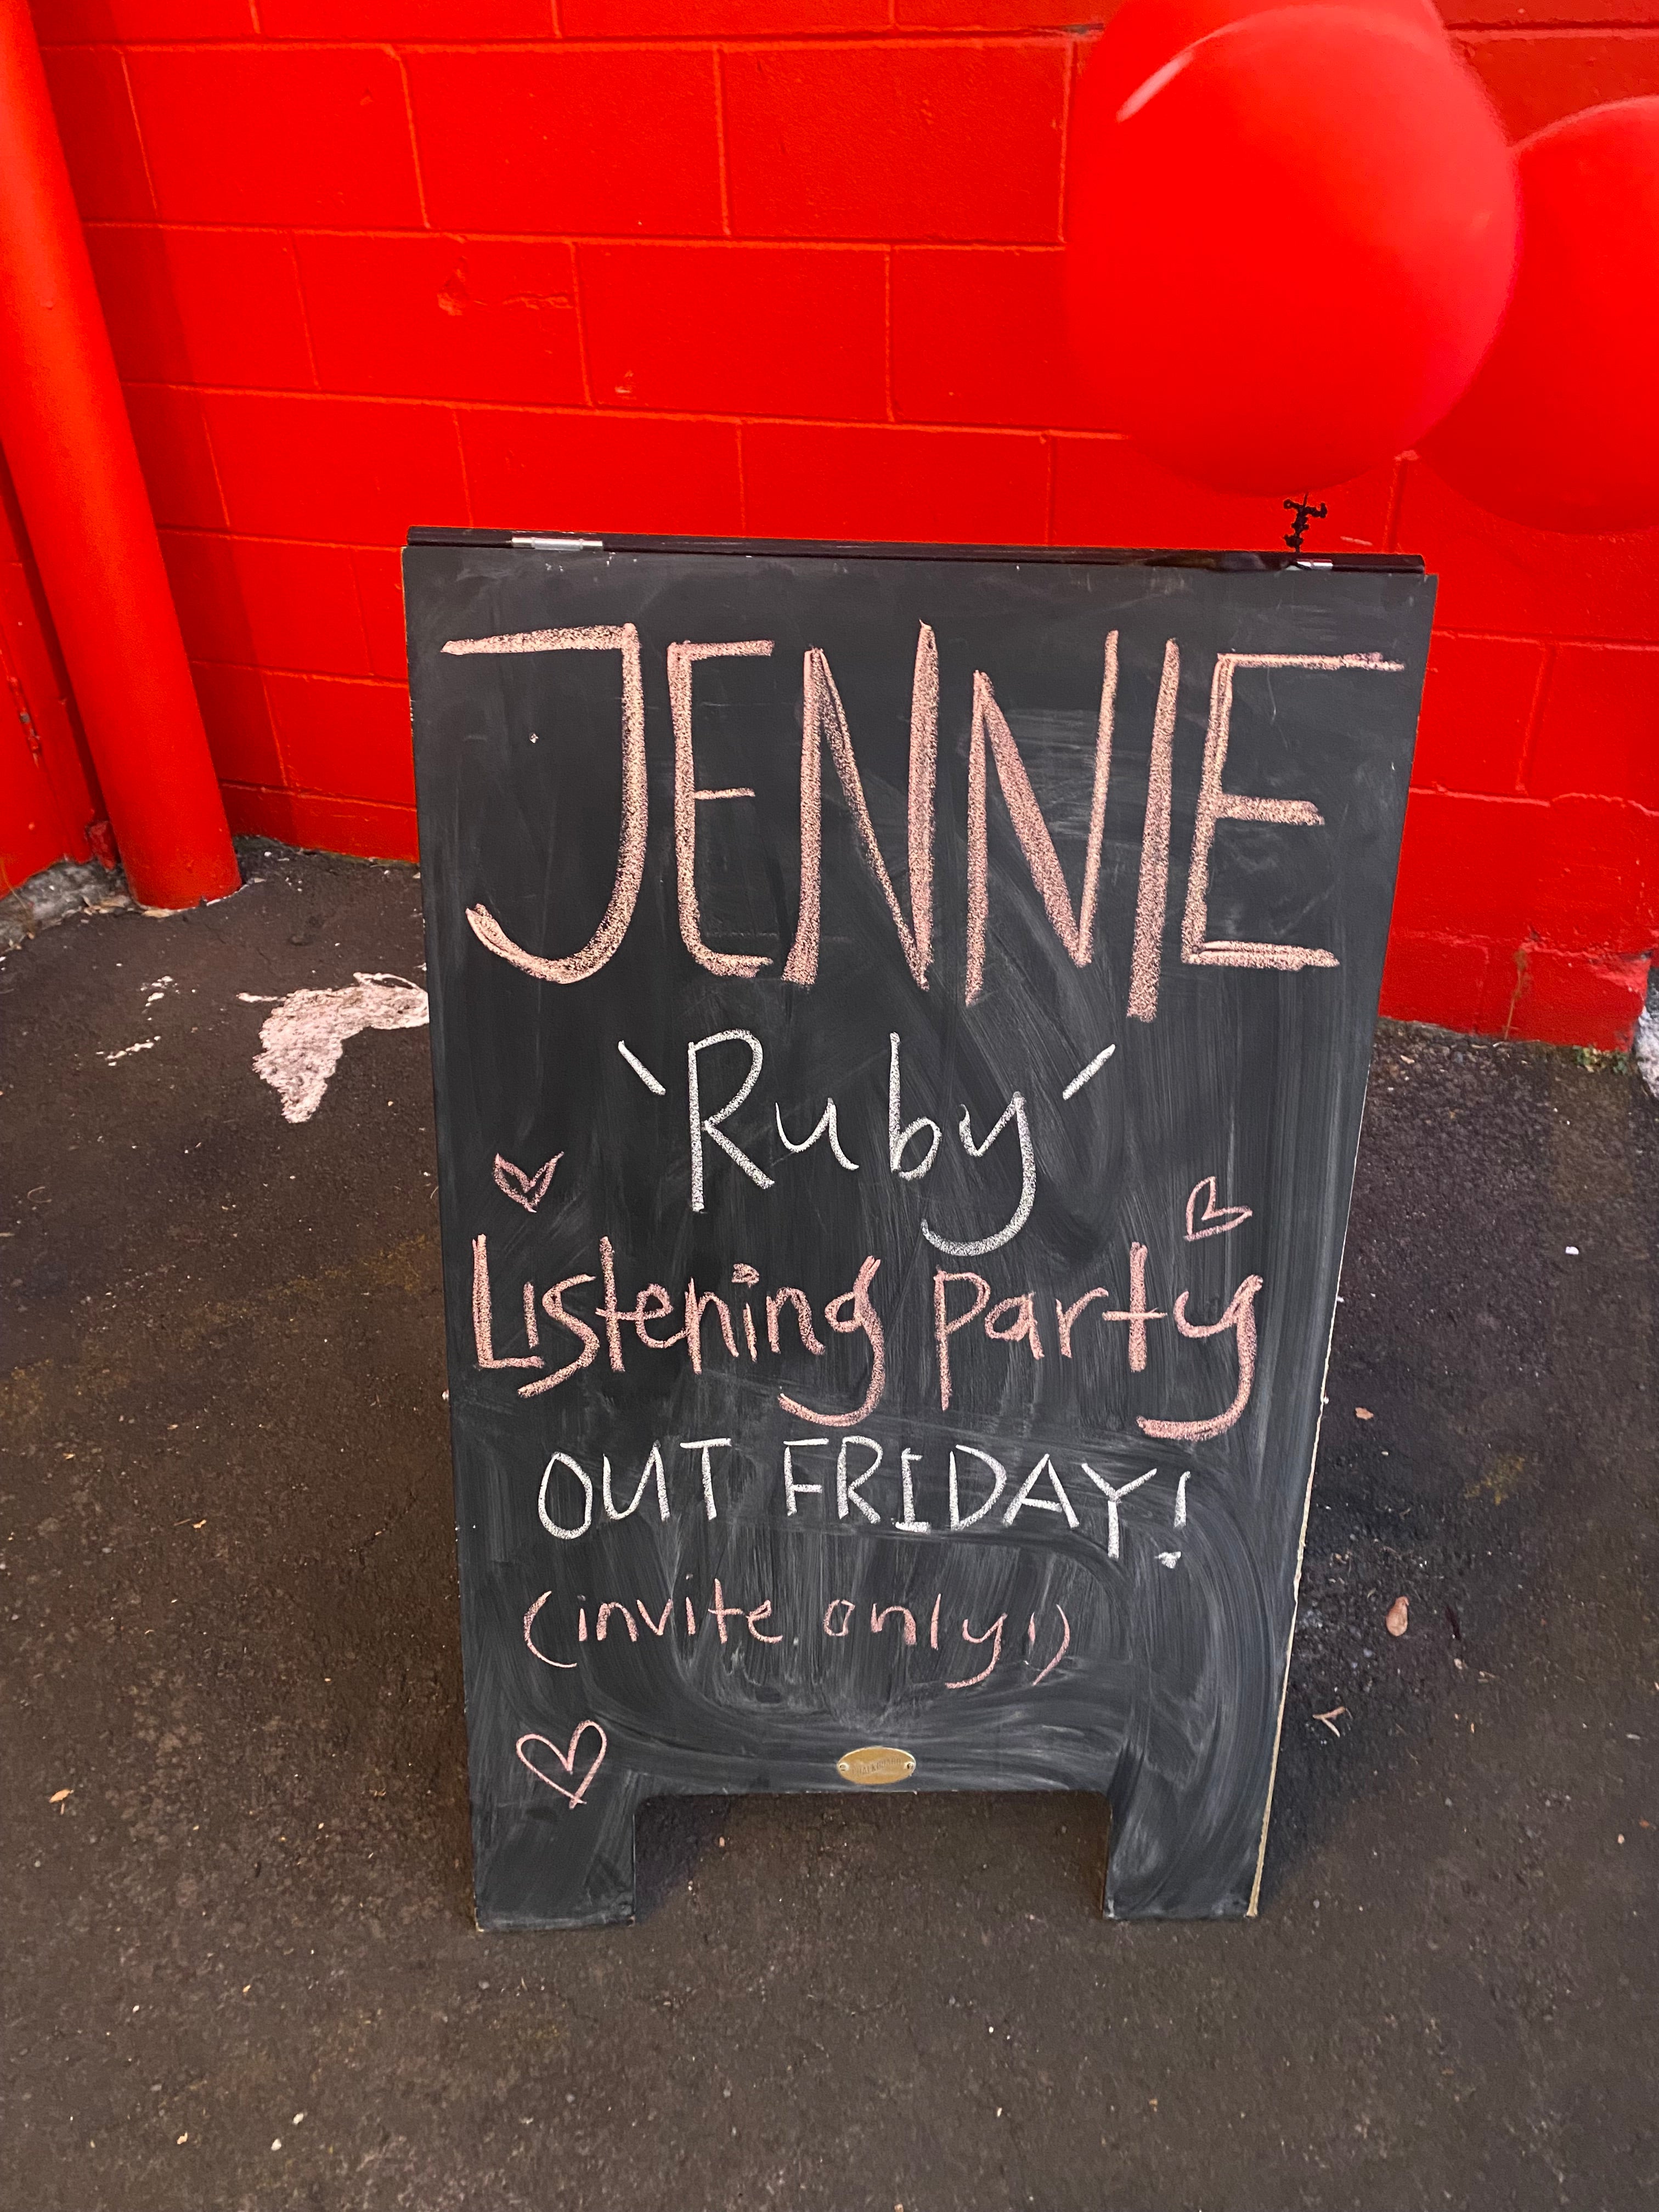 JENNIE
'Ruby'
Listening Party
OUT FRIDAY!
(invite only!)